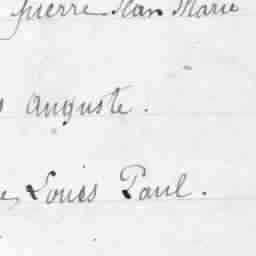 Pierre Jean Marie
Auguste.
Louis Paul.